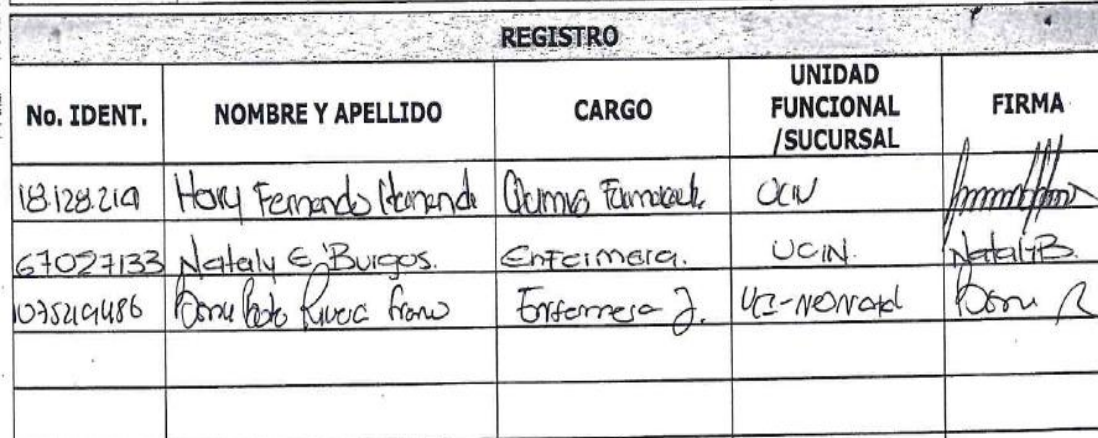 REGISTRO
No. IDENT. NOMBRE Y APELLIDO CARGO UNIDAD FUNCIONAL /SUCURSAL FIRMA
18.128.219 Fernando UCIN
67027133 Nataly E. Burgos. Enfermera. UCIN. Nataly B.
1075219486 Rivera Enfermera J. UCI-NEONATAL